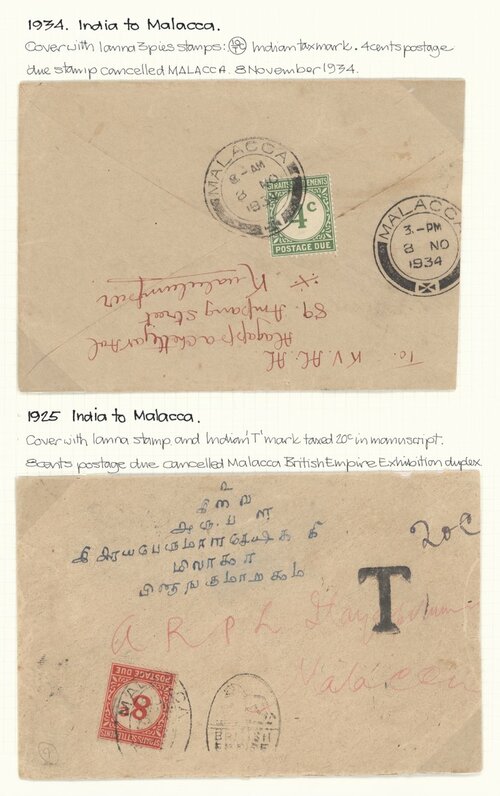 1934. India to Malacca.
Cover with 1anna 3pies stamps: Indian taxmark. 4cents postage
due stamp cancelled MALACCA. 8 November 1934.
MALACCA
8.-AM
8 NO
1934
STRAITS SETTLEMENTS
4c
POSTAGE DUE
MALACCA
3.-PM
8 NO
1934
To. K.V. AL. AL
Alagappa Chettyar
89. Ampang Street
Kualalumpur
1925 India to Malacca.
Cover with 1anna stamp and Indian 'T' mark taxed 20c in manuscript.
8cents postage due cancelled Malacca British Empire Exhibition duplex
உ
சிவை
அரு. ப ள
20c
T
A R P L
Malacca
POSTAGE DUE
8
STRAITS SETTLEMENTS
MALACCA
BRITISH
EMPIRE